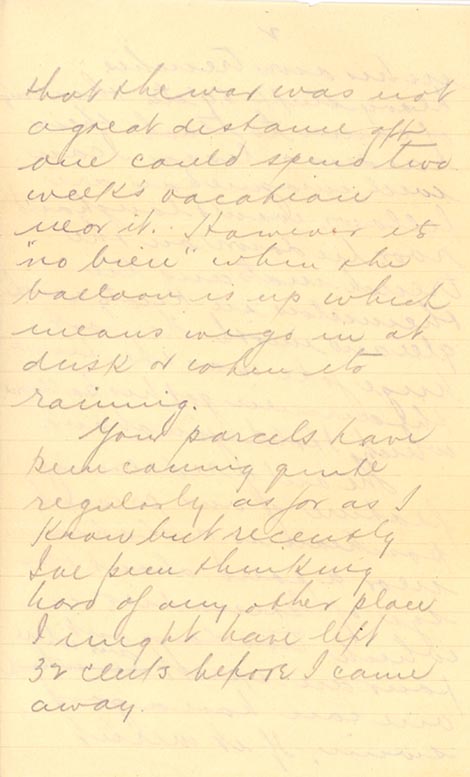 that the war was not
a great distance off
one could spend two
week's vacation
near it. However its
"no bien" when the
balloon is up which
means we go in at
dusk or when its
raining.
Your parcels have
been coming quite
regularly as far as I
know but recently
I've been thinking
hard of any other place
I might have left
32 cents before I came
away.